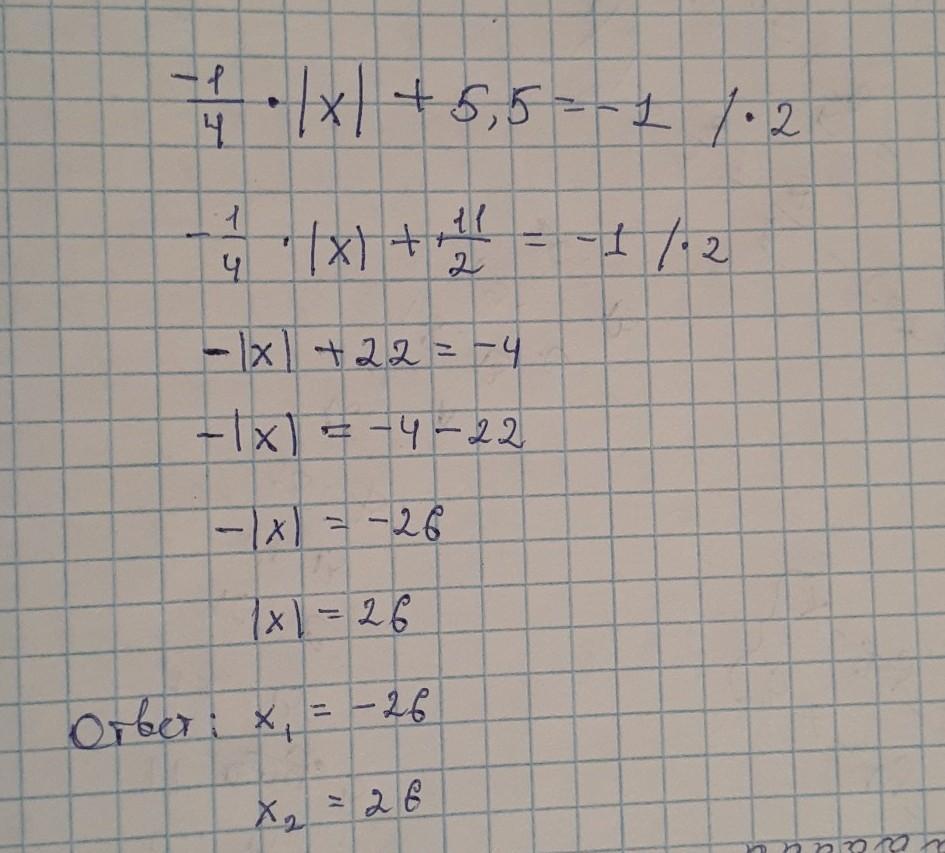 -1/4 · |x| + 5,5 = -1 /· 2
- 1/4 · |x| + 11/2 = -1 /· 2
-|x| + 22 = -4
-|x| = -4 - 22
-|x| = -26
|x| = 26
Ответ: x₁ = -26
x₂ = 26